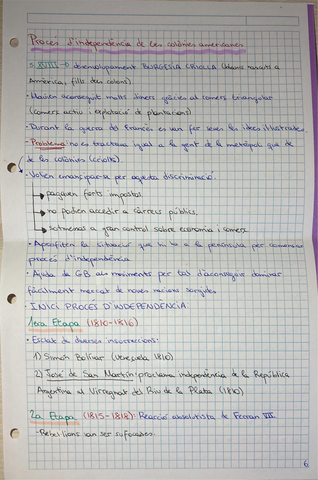 Procés d'independència de les colònies americanes
s. XVIII → desenvolupament BURGESIA CRIOLLA (blancs nascuts a
Amèrica, fills dels colons)
• Havien aconseguit molts diners gràcies al comerç triangular
(comerç actiu i explotació de plantacions)
• Durant la guerra del francès es van fer seves les idees il·lustrades.
• Problema: no es tractava igual a la gent de la metròpoli que de
de les colònies (criolls).
• Volien emancipar-se per aquesta discriminació.
→ pagaven forts impostos.
→ no podien accedir a càrrecs públics.
→ sotmesos a gran control sobre economia i comerç
• Aprofiten la situació que hi ha a la península per començar
procés d'independència
• Ajuda de GB als moviments per tal d'aconseguir dominar
fàcilment mercat de noves nacions sorgides
• INICI PROCÉS D'INDEPENDÈNCIA
1era Etapa (1810-1816)
• Esclat de diverses insurreccions:
1) Simón Bolívar (Veneçuela 1810)
2) José de San Martín: proclama independència de la República
Argentina al Virregnat del Riu de la Plata (1816)
2a Etapa (1815-1818): Reacció absolutista de Ferran VII
- Rebel·lions van ser sufocades.
6